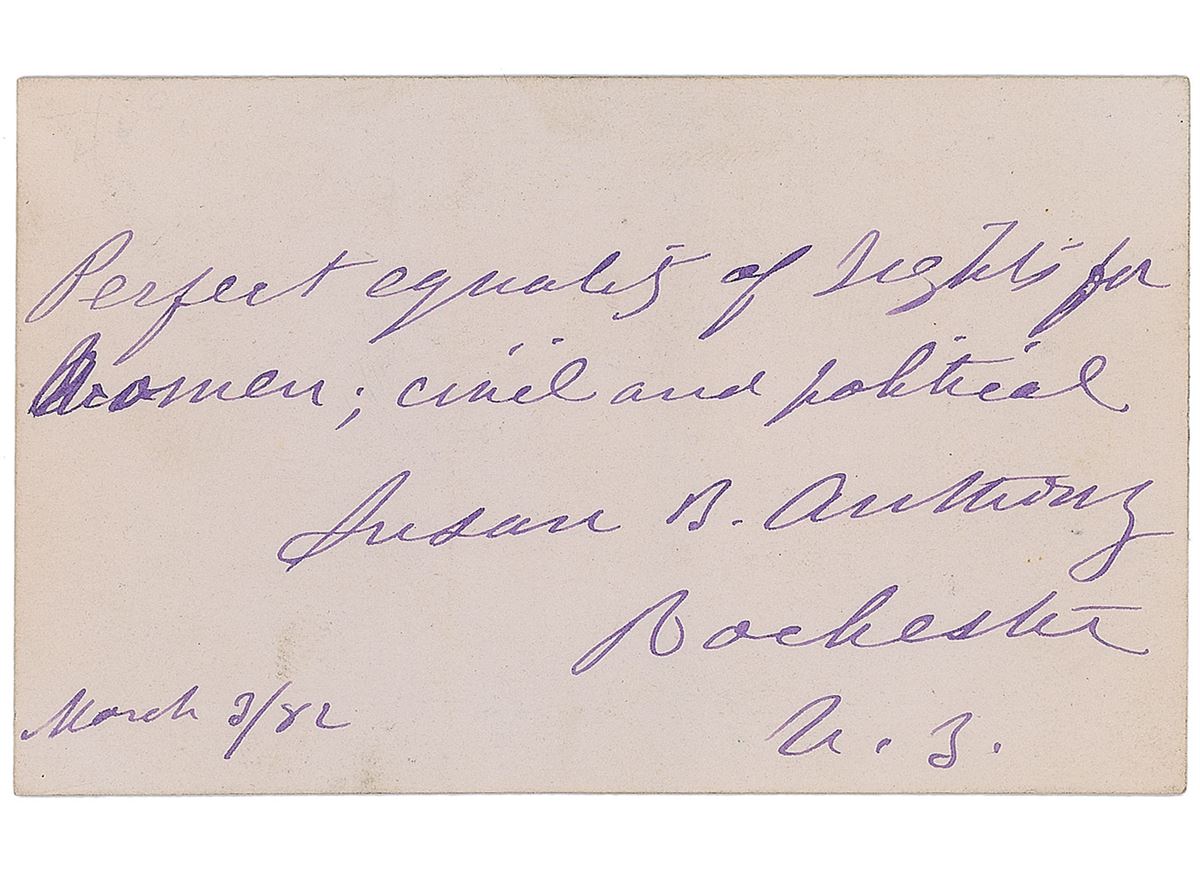 Perfect equality of rights for
Women; civil and political
Susan B. Anthony
Rochester
March 3/82 N. Y.